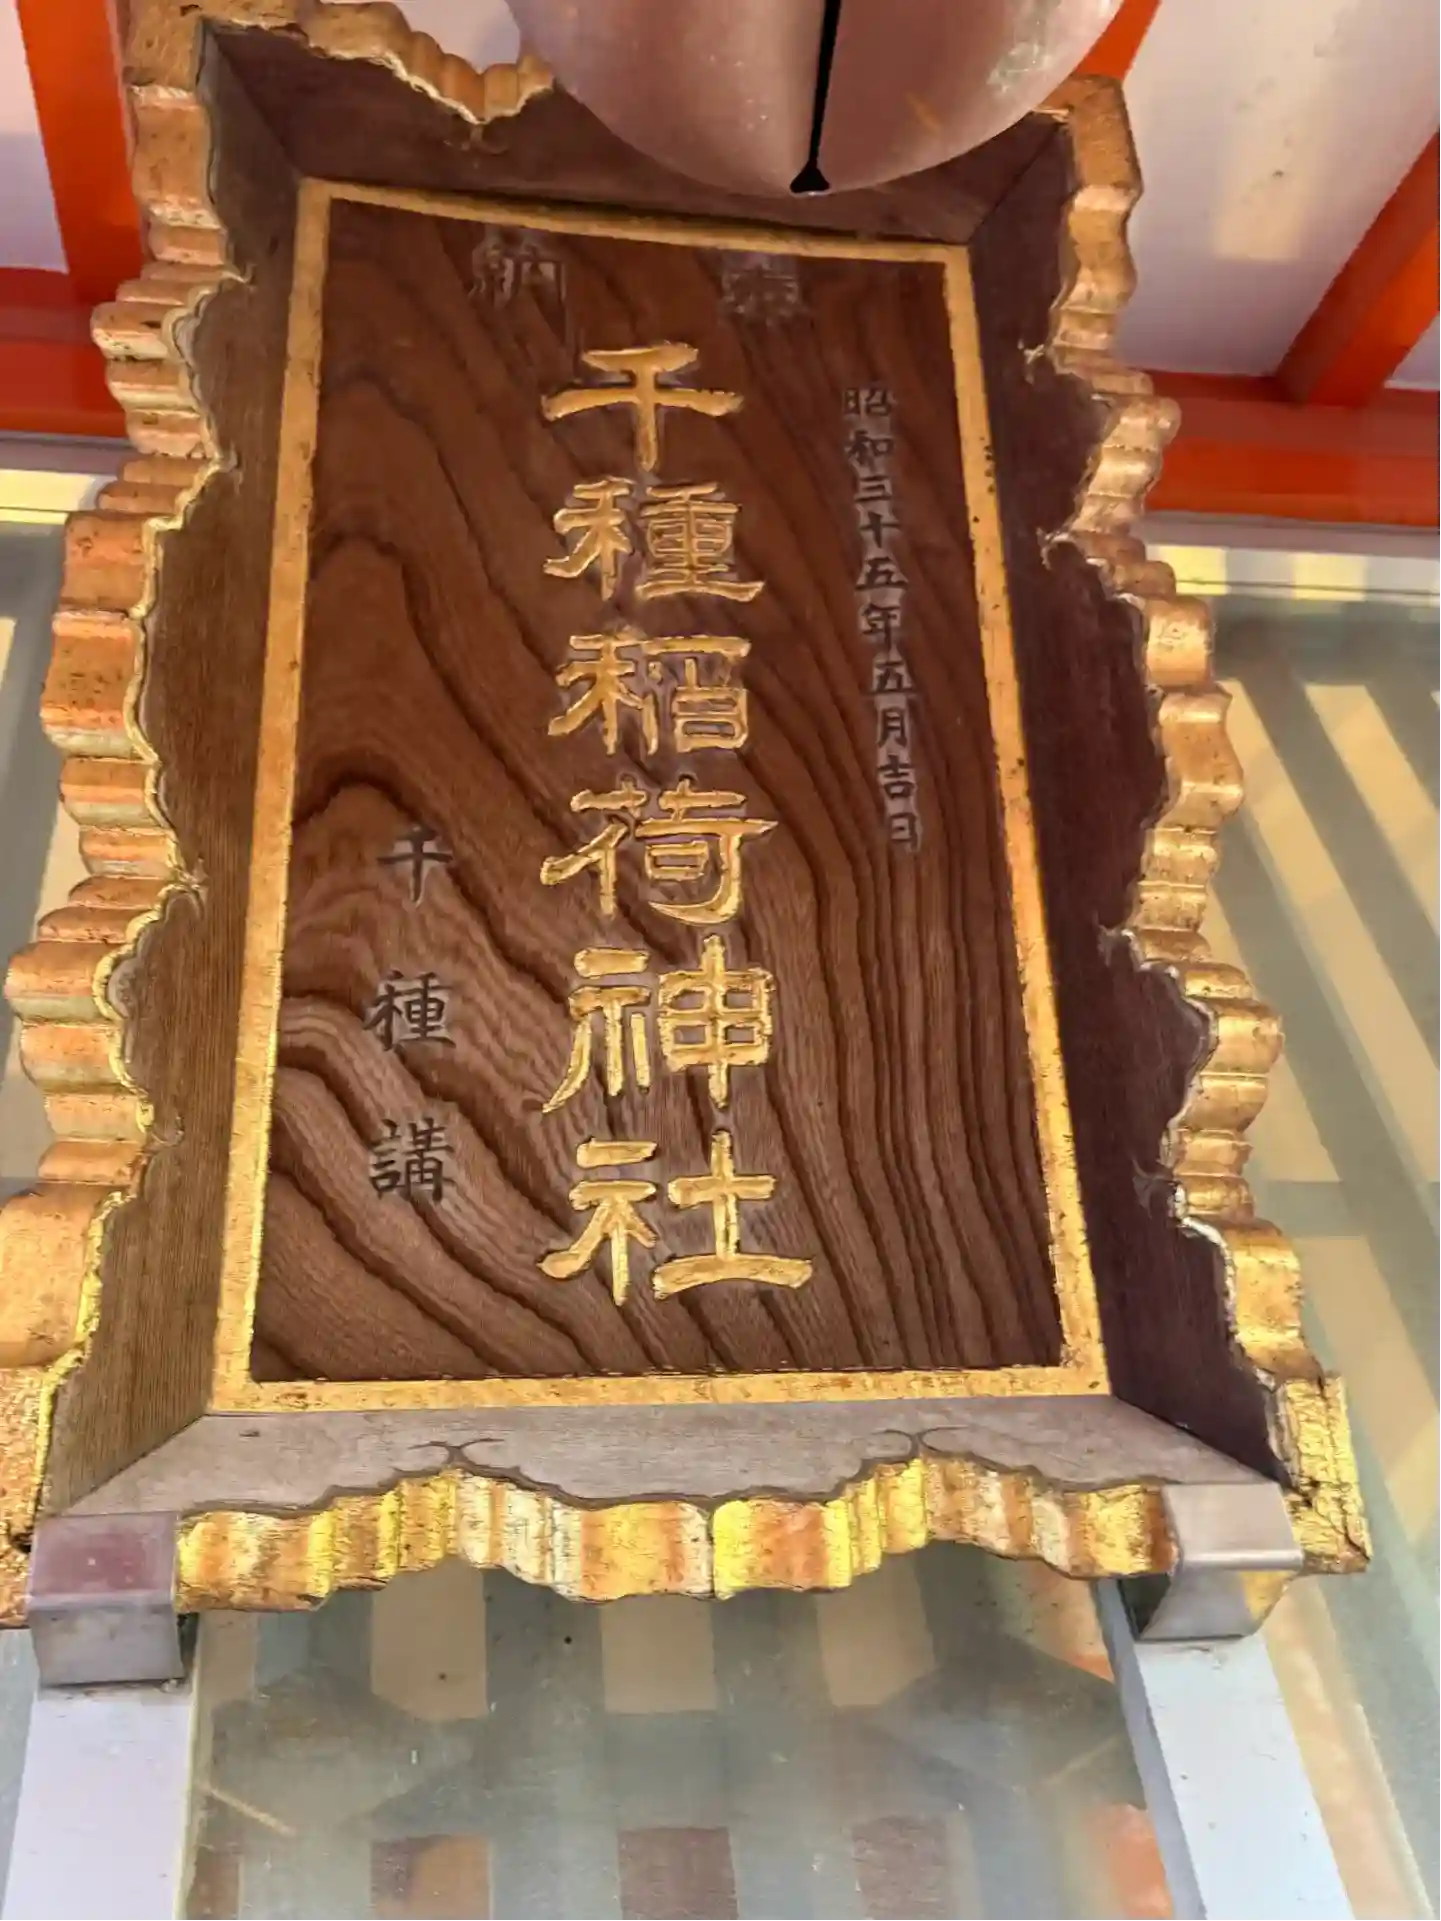 奉納
昭和三十五年五月吉日
千種稲荷神社
千種講